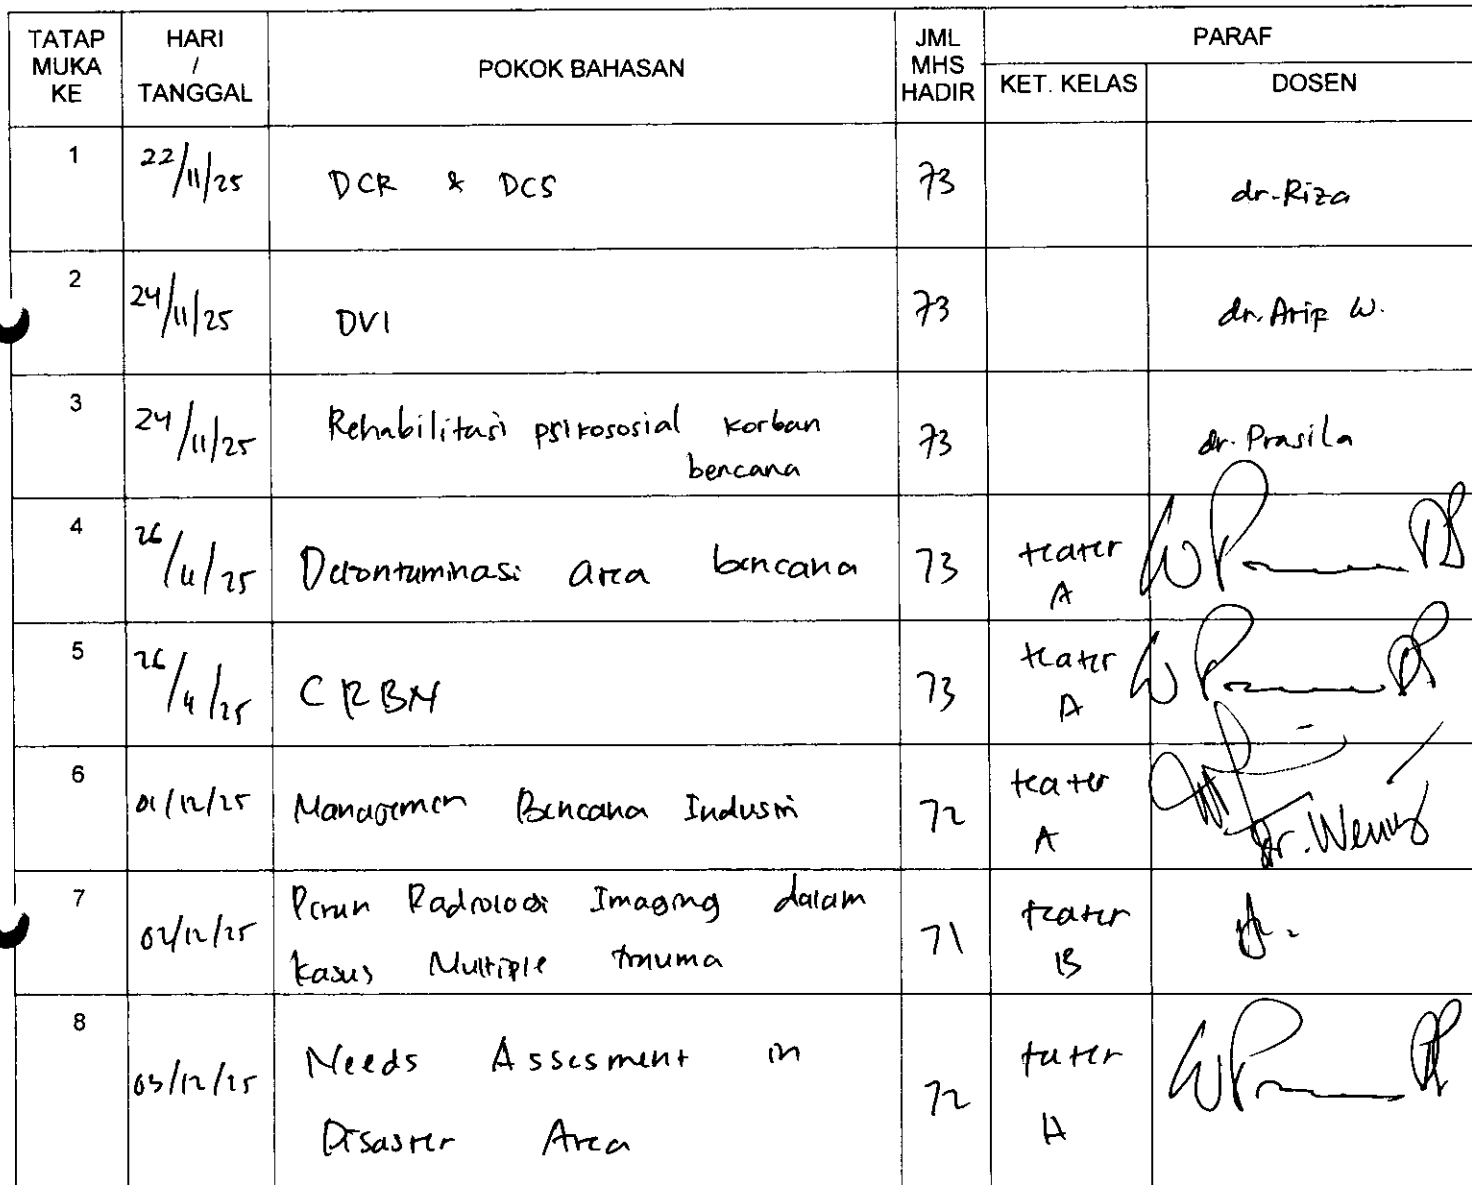 TATAP MUKA KE
HARI / TANGGAL
POKOK BAHASAN
JML MHS HADIR
PARAF
KET. KELAS
DOSEN
1 22/11/25 DCR & DCS 73 dr. Riza
2 24/11/25 DVI 73 dr. Arif W.
3 24/11/25 Rehabilitasi psikososial korban 73 dr. Prasila
bencana
4 26/11/25 Dekontaminasi area bencana 73 teater
A
5 26/11/25 CRBN 73 teater
A
6 01/12/25 Managemen Bencana Industri 72 teater
A dr. Weny
7 02/12/25 Peran Radiologi Imaging dalam 71 teater
kasus Multiple trauma B
8 03/12/25 Needs Assesment in 72 teater
Disaster Area A